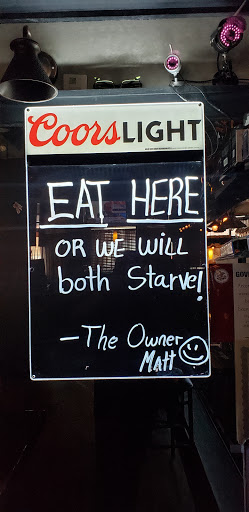 Coors LIGHT
EAT HERE
OR WE WILL
both Starve!
—The Owner
MATT